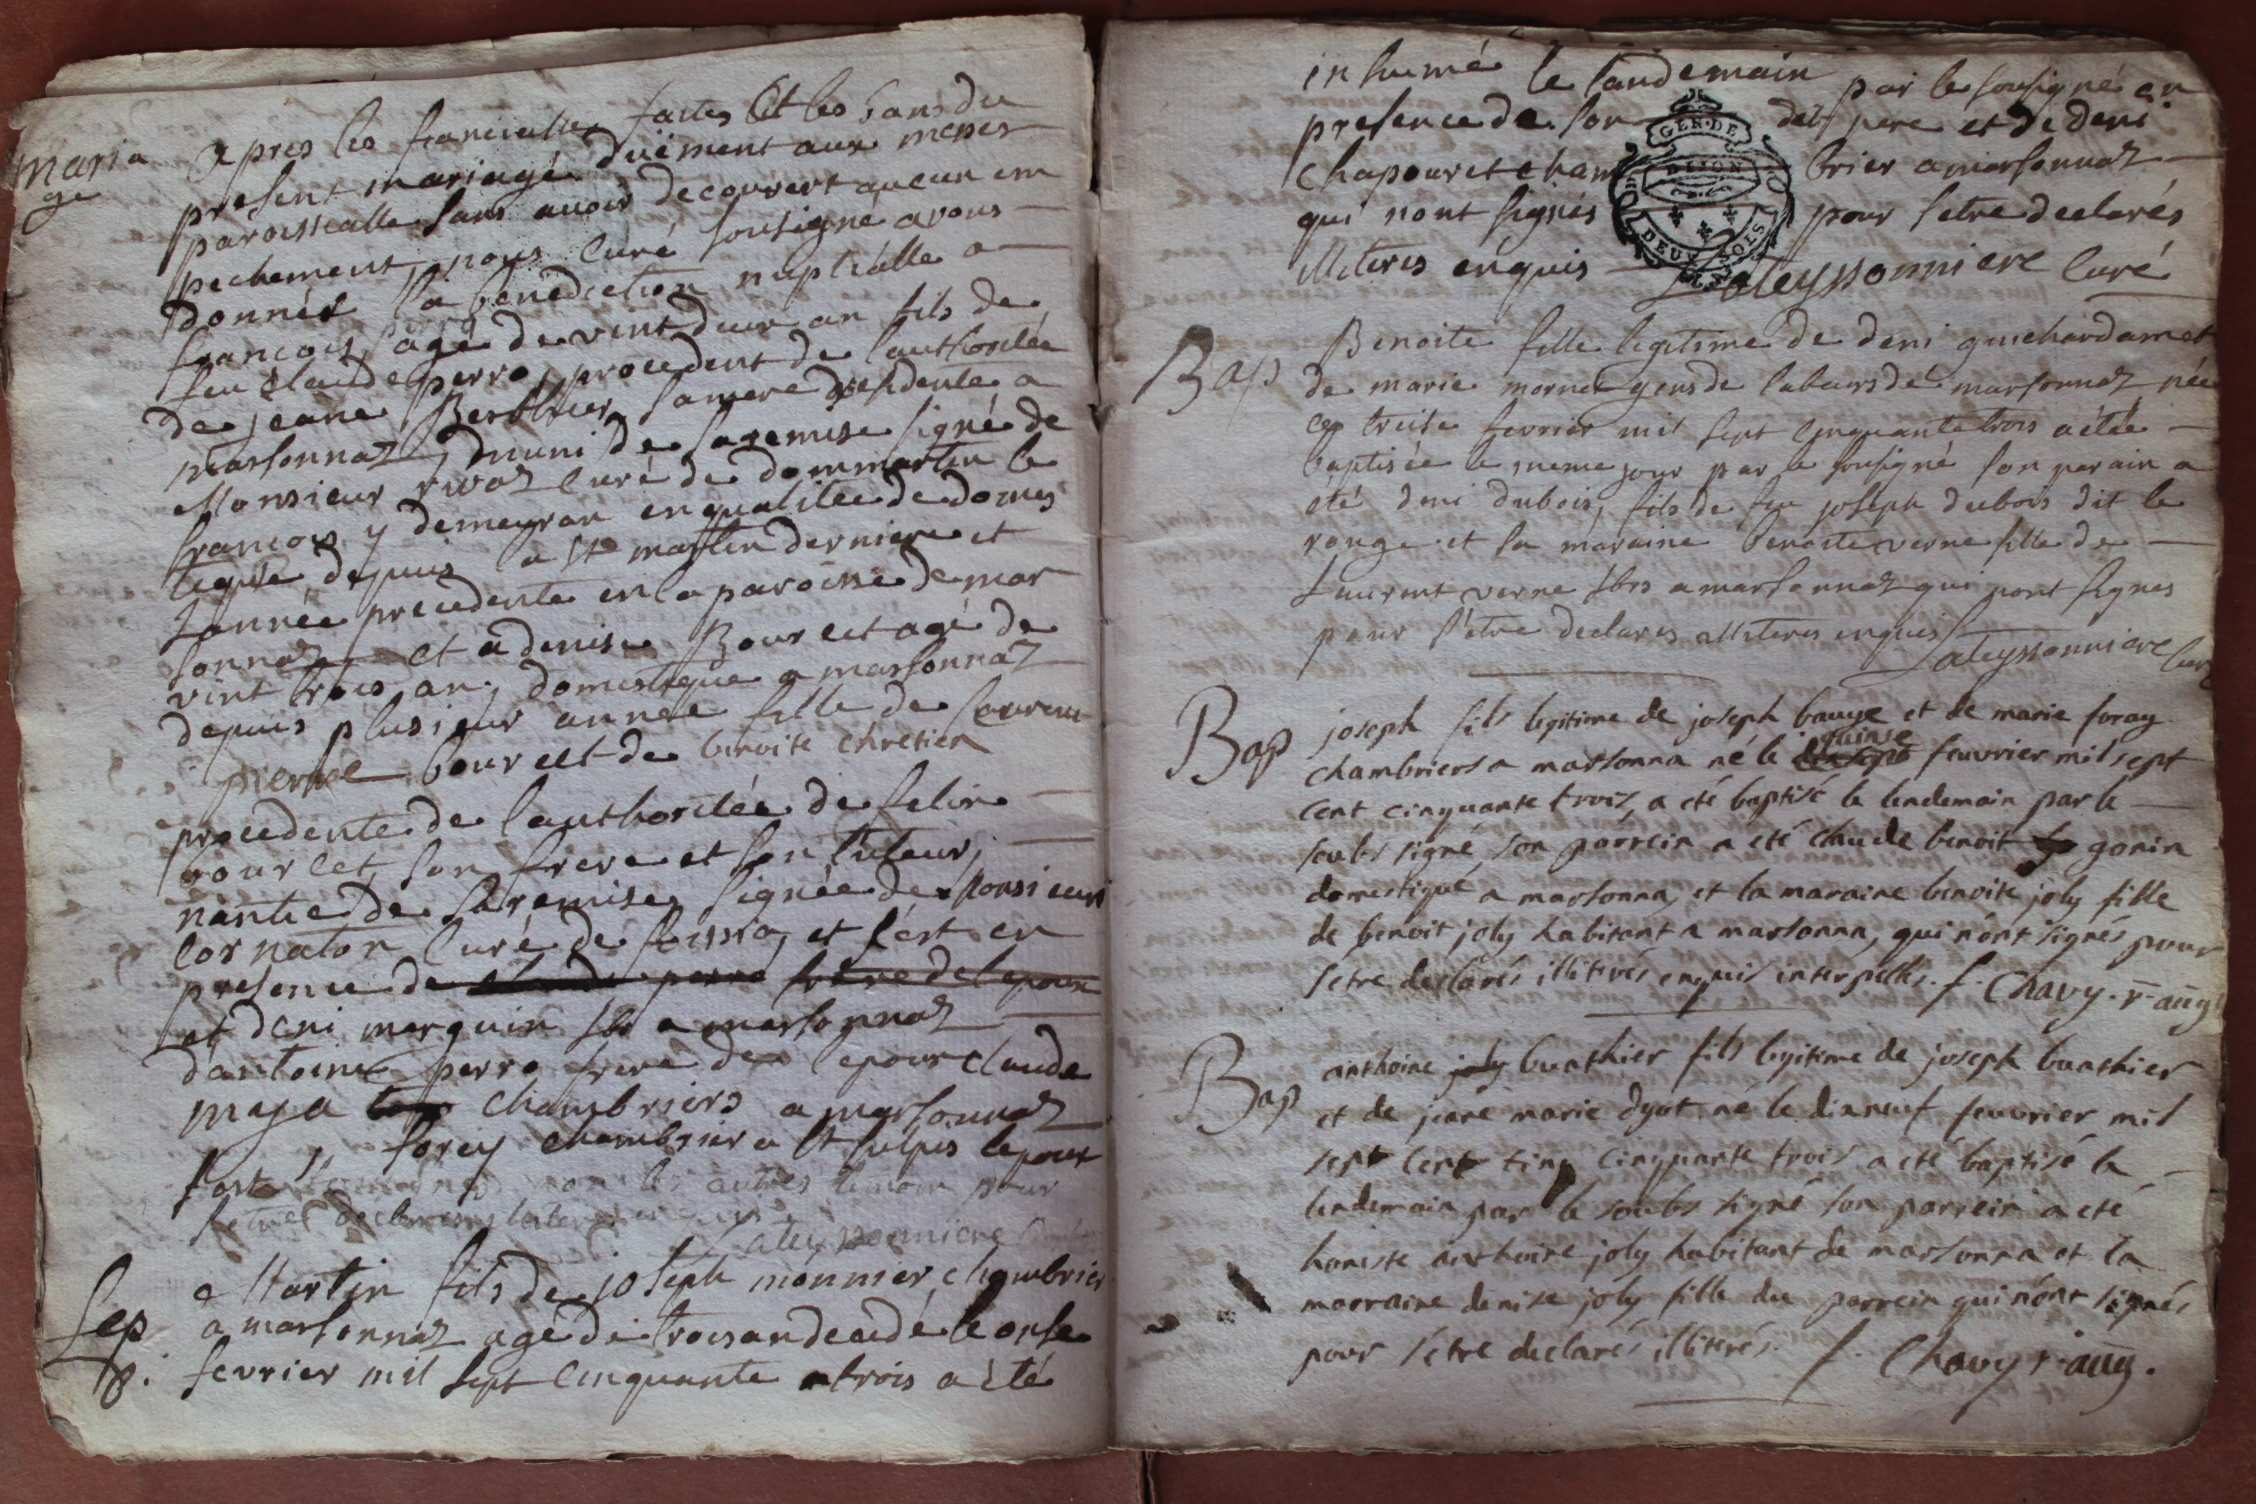 maria
ge
apres les fiancialle faites Et les bans du
present mariage duëment aux messes
paroissialle sans avoir decouvert aucun em
pechement, nous curé sousigné avons
donnés la benediction nuptialle a
françois perro agé de vint deux an fils de
feu claude perro, procedent de l'authoritée
de jeane Berthier sa mere residente a
marsonnaz, muni de sa remise signé de
Monsieur rivoz curé de dommartin le
françois y demeuran en qualitée de domes
tique depuis la st martin derniere et
l'année precedente en la paroisse de mar
sonnaz et a denise Bourcet agé de
vint trois an, domestique a marsonnaz
depuis plusieur année fille de
pierre bourcet de benoite chretien
procedente de l'authoritée de felix
bourcet, son frere et son tuteur,
nantie de sa remise signée de Monsieur
cornaton curé de foissia, et s'est en
presence de claude perro frere de lepoux
et deni marguin a marsonnaz
d'antoine perro frere de lepoux claude
maza chambriers a marsonnaz
forey chambrier a st sulpis lepoux
les autres temoin pour
s'etre declares
Lateyssonniere
Sep
Martin fils de joseph monnier, chambrier
a marsonnaz agé de trois an decedé le onse
fevrier mil sept cinquante trois a été
inhumé le landemain par le sousigné en
presence de son dit pere et de deni
chapouret chambrier a marsonnaz
qui nont signés pour setre declarés
illiteres enquis Lateyssonniere curé
GEN. DE
DIJON
DEUX SOLS
Bap
Benoite fille legitime de deni guichardamet
de marie mornex gens de labeurs de marsonnaz née
ce treise fevrier mil sept cinquante trois a étée
baptisée le meme jour par le sousigné son parain a
été deni dubois, fils de feu joseph dubois dit le
rouge et sa maraine benoite verne fille de
Laurent verne a marsonnaz qui nont signes
pour s'etre declares illiteres enquis Lateyssonniere curé
Bap
joseph fils legitime de joseph bauye et de marie foray
chambriers a marsonna né le quinse feuvrier mil sept
cent cinquante trois, a été baptisé le lendemain par le
soubs signé, son parrein a été claude benoit gonin
domestique a marsonna, et la maraine benoite joly fille
de benoit joly habitant a marsonna, qui n'ont signés pour
setre declarés illiterés enquis interpellés. f. Chavy. r. aug
Bap
anthoine joly bunthier fils legitime de joseph bunthier
et de jane marie dyot né le dixneuf feuvrier mil
sept cent cinq cinquante trois a été baptisé le
lendemain par le soubs signé son parrein a été
honeste anthoine joly habitant de marsonna et la
marraine denise joly fille du parrein qui n'ont signés
pour s'etre declarés illiterés. f. Chavy r. aug.